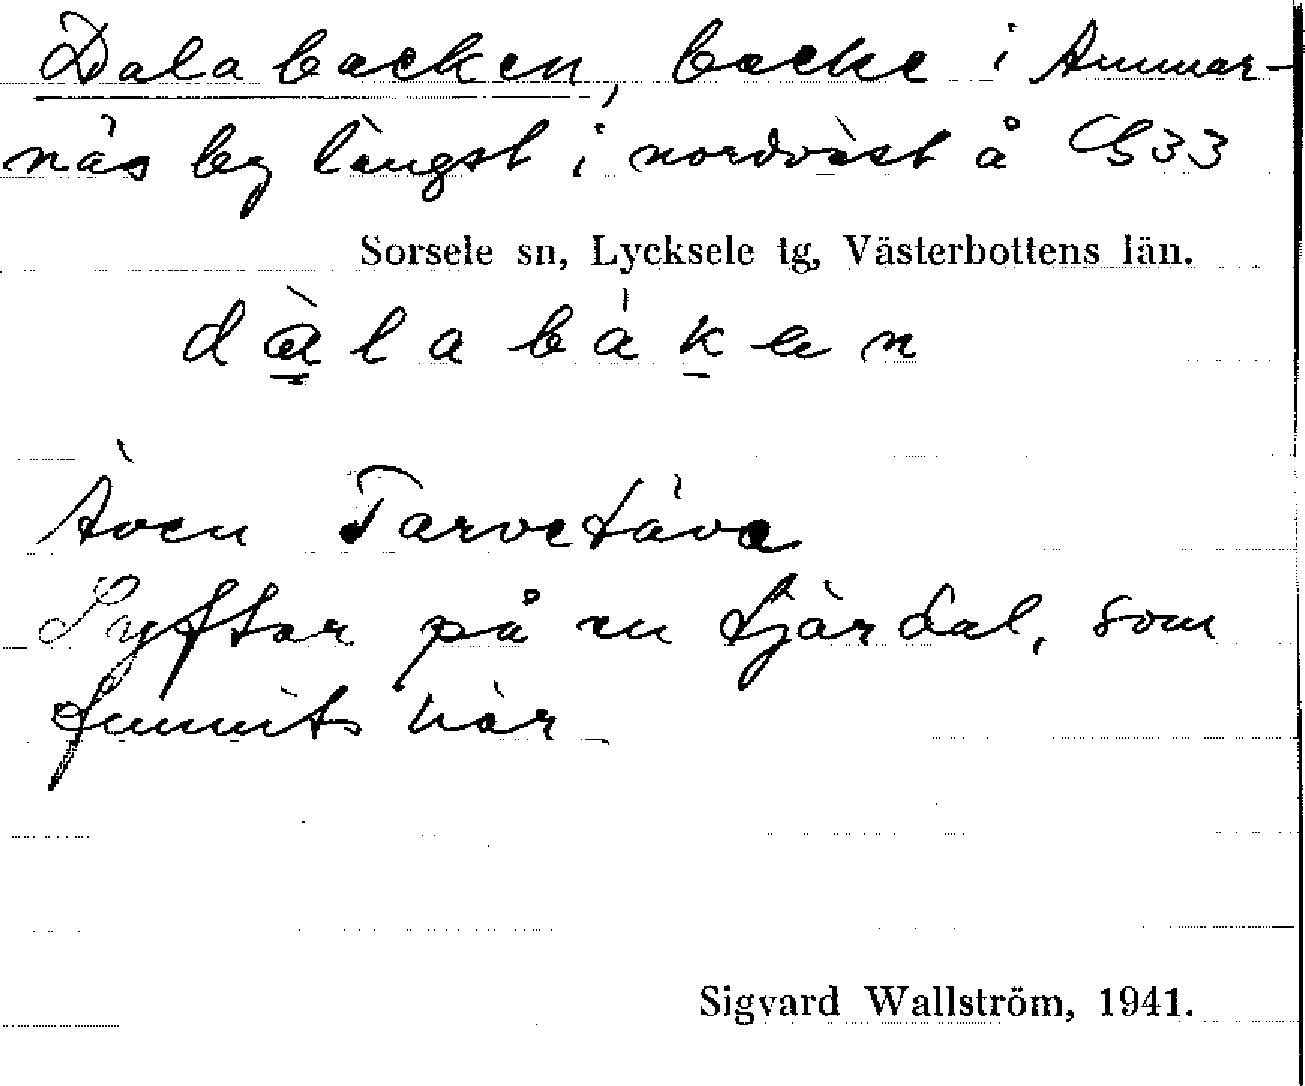 Dalabacken, backe i Ammar-
näs by längst i nordväst å G33
Sorsele sn, Lycksele tg, Västerbottens län.
dàlabáken
Även Tarvetäve
Syftar på en tjärdal, som
funnits här
Sigvard Wallström, 1941.